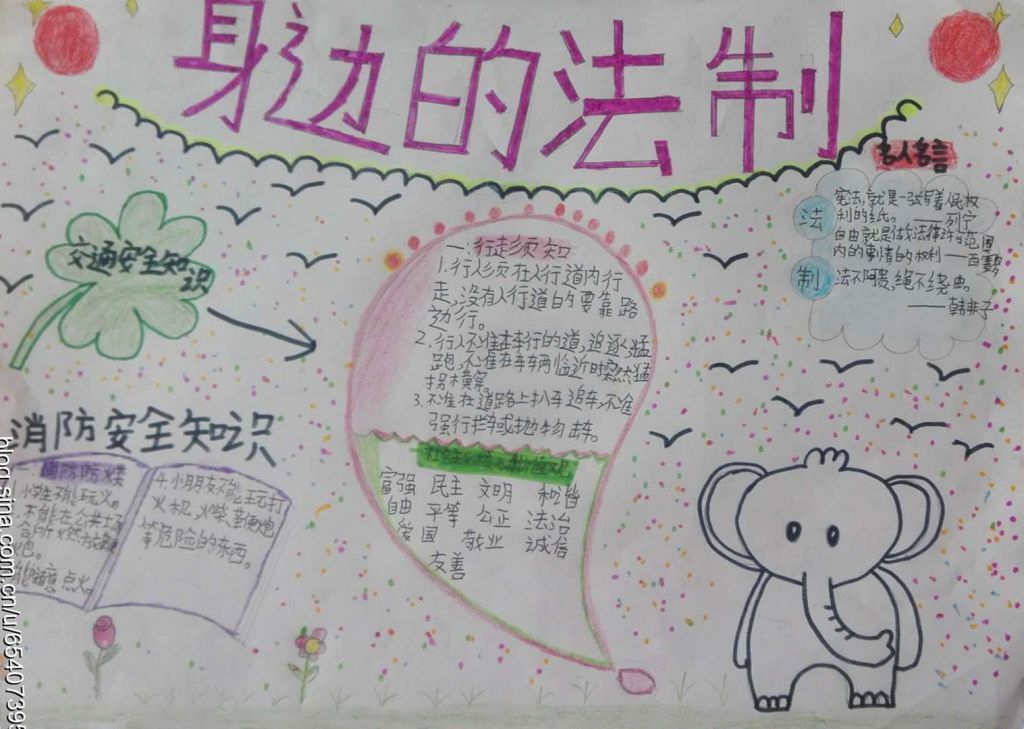 身边的法制
名人名言
法
制
宪法,就是一张写着人民权
利的纸。——列宁
自由就是做法律许可范围
内的事情的权利——西塞罗
法不阿贵,绳不绕曲。
——韩非子
交通安全知
识
一.行走须知
1.行人须在人行道内行
走,没有人行道的要靠路
边行。
2.行人不准在车行的道,追逐、猛
跑,不准在车辆临近时突然猛
拐横穿。
3.不准在道路上扒车追车,不准
强行拦车或抛物击车。
社会主义核心价值观
富强 民主 文明 和谐
自由 平等 公正 法治
爱国 敬业 诚信
友善
消防安全知识
消防防火
1.小学生不能玩火。
不能在公共场
合所燃放鞭
炮。
点火。
4.小朋友不能玩打
火机,火柴,鞭炮
等危险的东西。
blog.sina.com.cn/u/65407395